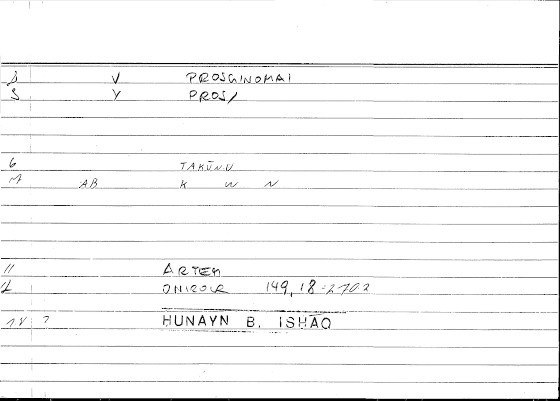 3 V PROSGINOMAI
5 Y PROS/
6 TAKŪNU
M AB K W N
11 ARTEM
ONIROCR 149, 18 = 2702
14 ? HUNAYN B. ISHĀQ